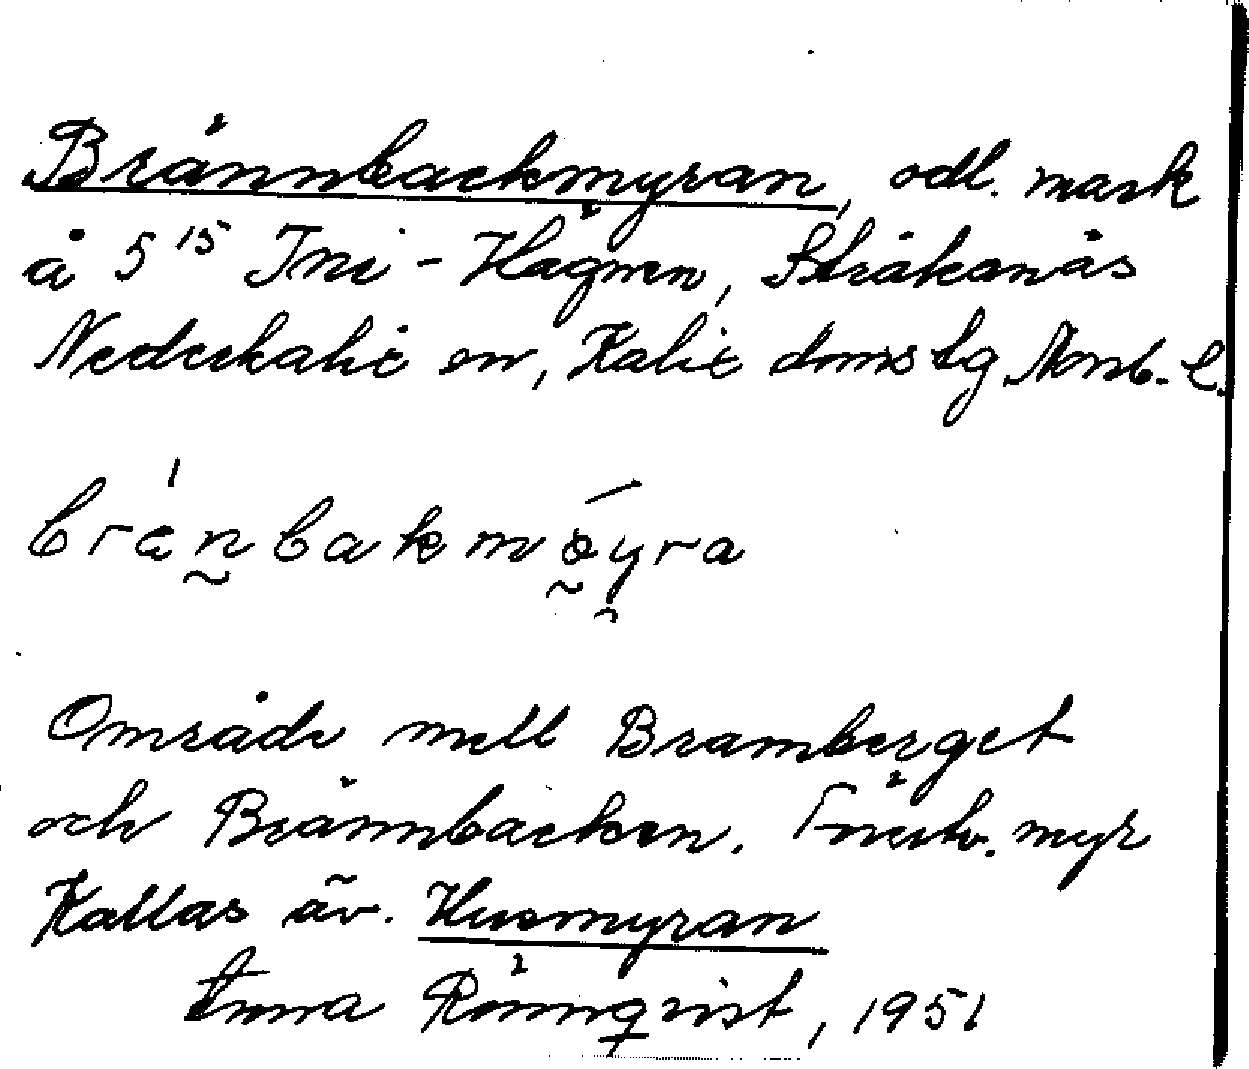 Brännbackmyran, odl. mark
å 5¹⁵ Ini-Hägnen, Stråkanäs
Nederkalix sn, Kalix domsbg Norrb. l.
bränbakmøyra
Område mell Bramberget
och Brännbacken. Förutv. myr
Kallas äv. Husmyran
Anna Rönnqvist, 1951